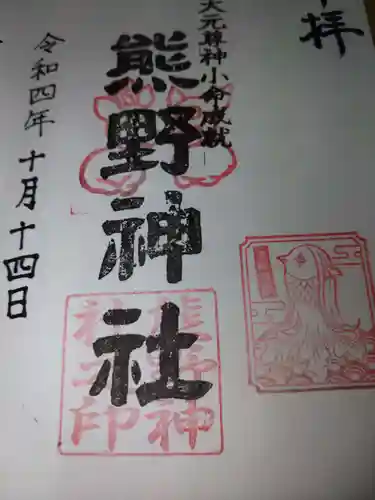 拝
大元尊神小命成就
熊野神社
熊野神
社之印
令和四年十月十四日